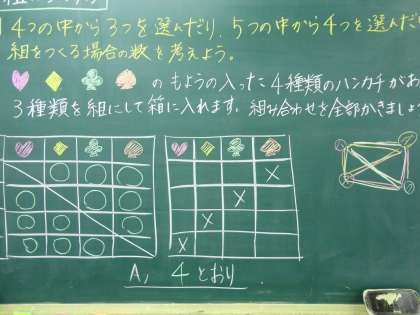 4つの中から3つを選んだり、5つの中から4つを選んだ
組をつくる場合の数を考えよう。
のもようの入った4種類のハンカチがあ
3種類を組にして箱に入れます。組み合わせを全部かきましょ
A, 4とおり